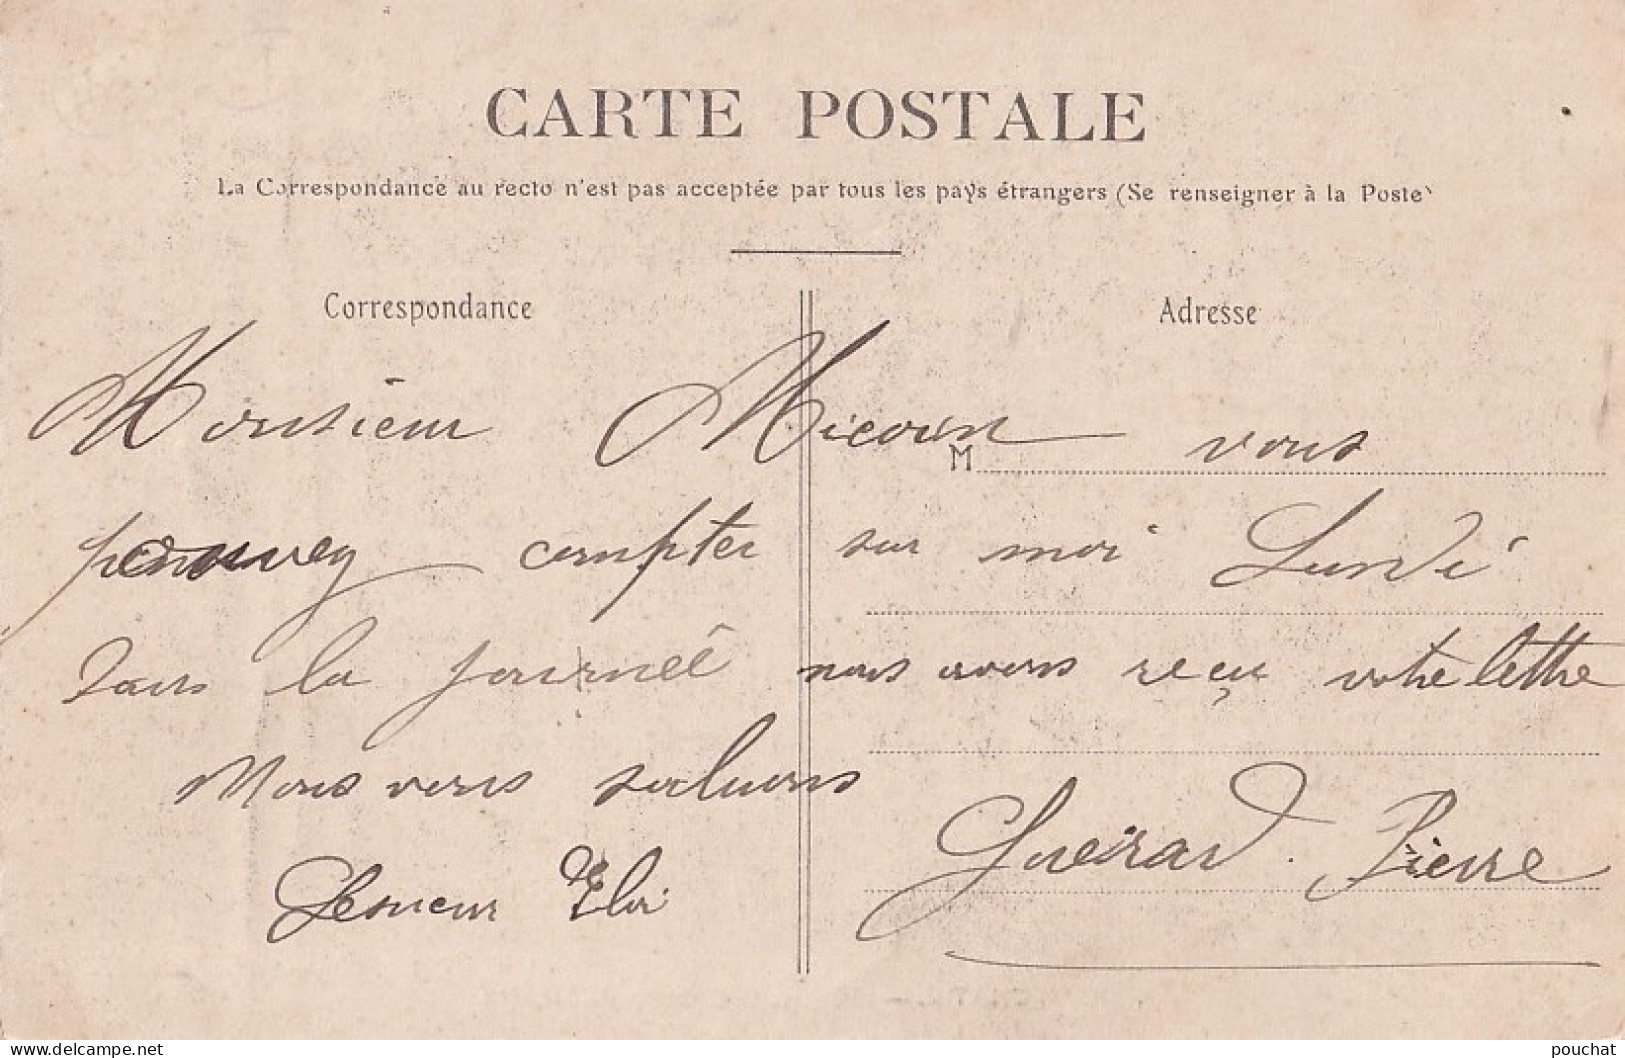 CARTE POSTALE
La Correspondance au recto n'est pas acceptée par tous les pays étrangers (Se renseigner à la Poste)
Correspondance
Adresse
Monsieur Micoin vous
M
compter sur moi Lundi
Dans la journeé nous avons reçu votre lettre
Nous vous saluons
Lesueur Eloi
Guérard. Pierre
www.delcampe.net
pouchat